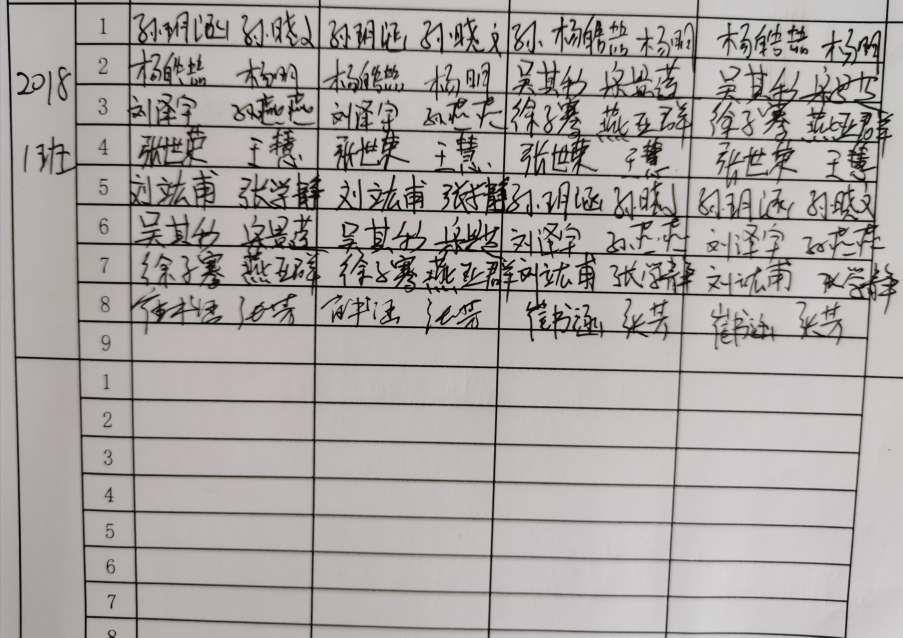 1 孙玥涵 孙晓文 孙玥涵 孙晓文 孙 杨皓喆 杨明 杨皓喆 杨明
2018 2 杨皓喆 杨明 杨皓喆 杨明 吴其 吴其
3 刘泽宇 孙燕燕 刘泽宇 孙燕燕 徐子骞 燕亚群 徐子骞 燕亚群
1班 4 张世荣 王慧 张世荣 王慧 张世荣 王慧 张世荣 王慧
5 刘竑甫 张学静 刘竑甫 张学静 孙玥涵 孙晓文 孙玥涵 孙晓文
6 吴其 吴其 刘泽宇 孙燕燕 刘泽宇 孙燕燕
7 徐子骞 燕亚群 徐子骞 燕亚群 刘竑甫 张学静 刘竑甫 张学静
8 崔书涵 张芳 崔书涵 张芳 崔书涵 张芳 崔书涵 张芳
9
1
2
3
4
5
6
7
8